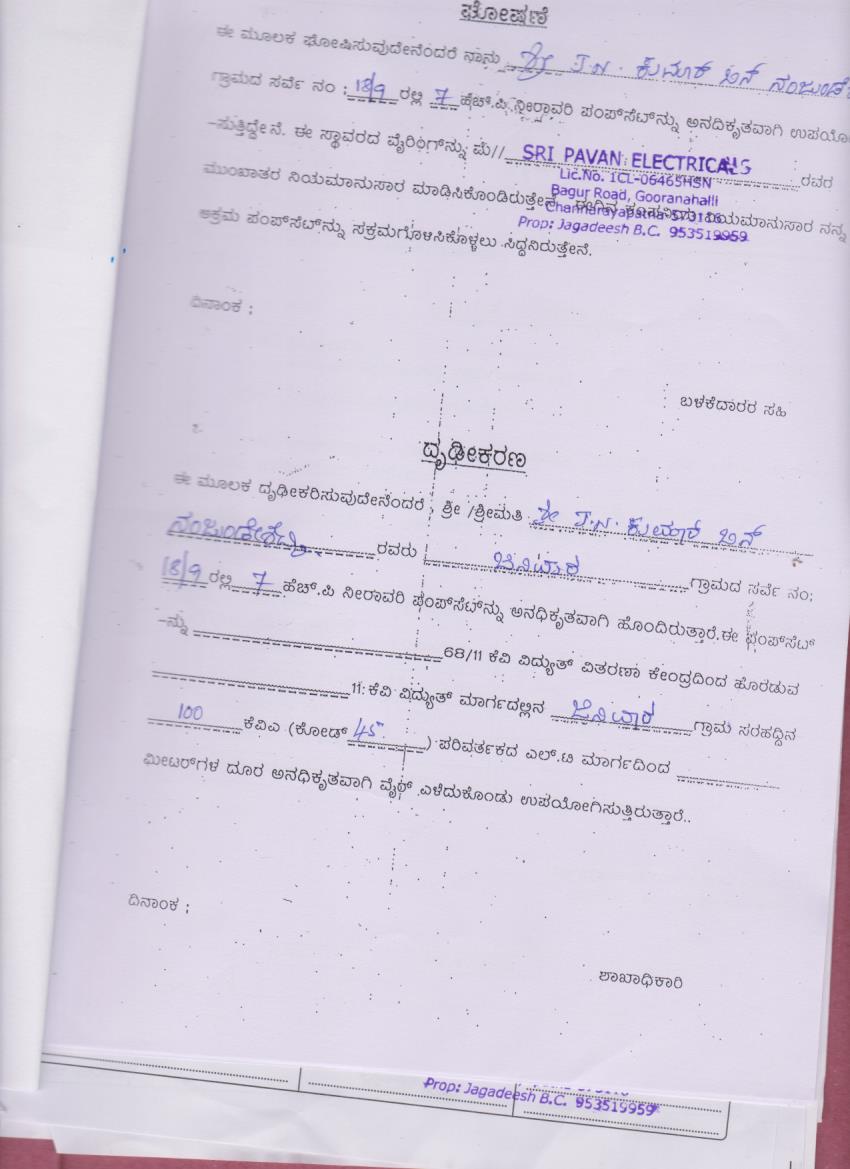 ಘೋಷಣೆ
ಈ ಮೂಲಕ ಘೋಷಿಸುವುದೇನೆಂದರೆ ನಾನು ಶ್ರೀ J.N. ಕುಮಾರ್ ಬಿನ್ ನಂಜುಂಡೆ
ಗ್ರಾಮದ ಸರ್ವೆ ನಂ : 18/9 ರಲ್ಲಿ 7 ಹೆಚ್.ಪಿ ನೀರಾವರಿ ಪಂಪ್‌ಸೆಟ್‌ನ್ನು ಅನದಿಕೃತವಾಗಿ ಉಪಯೋ
-ಸುತ್ತಿದ್ದೇನೆ. ಈ ಸ್ಥಾವರದ ವೈರಿಂಗ್‌ನ್ನು ಮೆ// SRI PAVAN ELECTRICALS ರವರ
Lic.No. 1CL-06465HSN
ಮುಖಾಂತರ ನಿಯಮಾನುಸಾರ ಮಾಡಿಸಿಕೊಂಡಿರುತ್ತೇನೆ. ನಿಯಮಾನುಸಾರ ನನ್ನ
Bagur Road, Gooranahalli
Channarayapatna-573116
Prop: Jagadeesh B.C. 953519959
ಅಕ್ರಮ ಪಂಪ್‌ಸೆಟ್‌ನ್ನು ಸಕ್ರಮಗೊಳಿಸಿಕೊಳ್ಳಲು ಸಿದ್ಧನಿರುತ್ತೇನೆ.
ದಿನಾಂಕ ;
ಬಳಕೆದಾರರ ಸಹಿ
ದೃಢೀಕರಣ
ಈ ಮೂಲಕ ದೃಢೀಕರಿಸುವುದೇನೆಂದರೆ , ಶ್ರೀ /ಶ್ರೀಮತಿ ಶ್ರೀ J.N. ಕುಮಾರ್ ಬಿನ್
ನಂಜುಂಡೇಶೆಟ್ಟಿ ರವರು ಜಿನಿವಾರ ಗ್ರಾಮದ ಸರ್ವೆ ನಂ:
18/9 ರಲ್ಲಿ 7 ಹೆಚ್.ಪಿ ನೀರಾವರಿ ಪಂಪ್‌ಸೆಟ್‌ನ್ನು ಅನಧಿಕೃತವಾಗಿ ಹೊಂದಿರುತ್ತಾರೆ.ಈ ಪಂಪ್‌ಸೆಟ್
-ನ್ನು 68/11 ಕೆವಿ ವಿದ್ಯುತ್ ವಿತರಣಾ ಕೇಂದ್ರದಿಂದ ಹೊರಡುವ
11 ಕೆವಿ ವಿದ್ಯುತ್ ಮಾರ್ಗದಲ್ಲಿನ ಜಿನಿವಾರ ಗ್ರಾಮ ಸರಹದ್ದಿನ
100 ಕೆವಿಎ (ಕೋಡ್ 45 ) ಪರಿವರ್ತಕದ ಎಲ್.ಟಿ ಮಾರ್ಗದಿಂದ
ಮೀಟರ್‌ಗಳ ದೂರ ಅನಧಿಕೃತವಾಗಿ ವೈರ್ ಎಳೆದುಕೊಂಡು ಉಪಯೋಗಿಸುತ್ತಿರುತ್ತಾರೆ..
ದಿನಾಂಕ ;
ಶಾಖಾಧಿಕಾರಿ
Prop: Jagadeesh B.C. 953519959